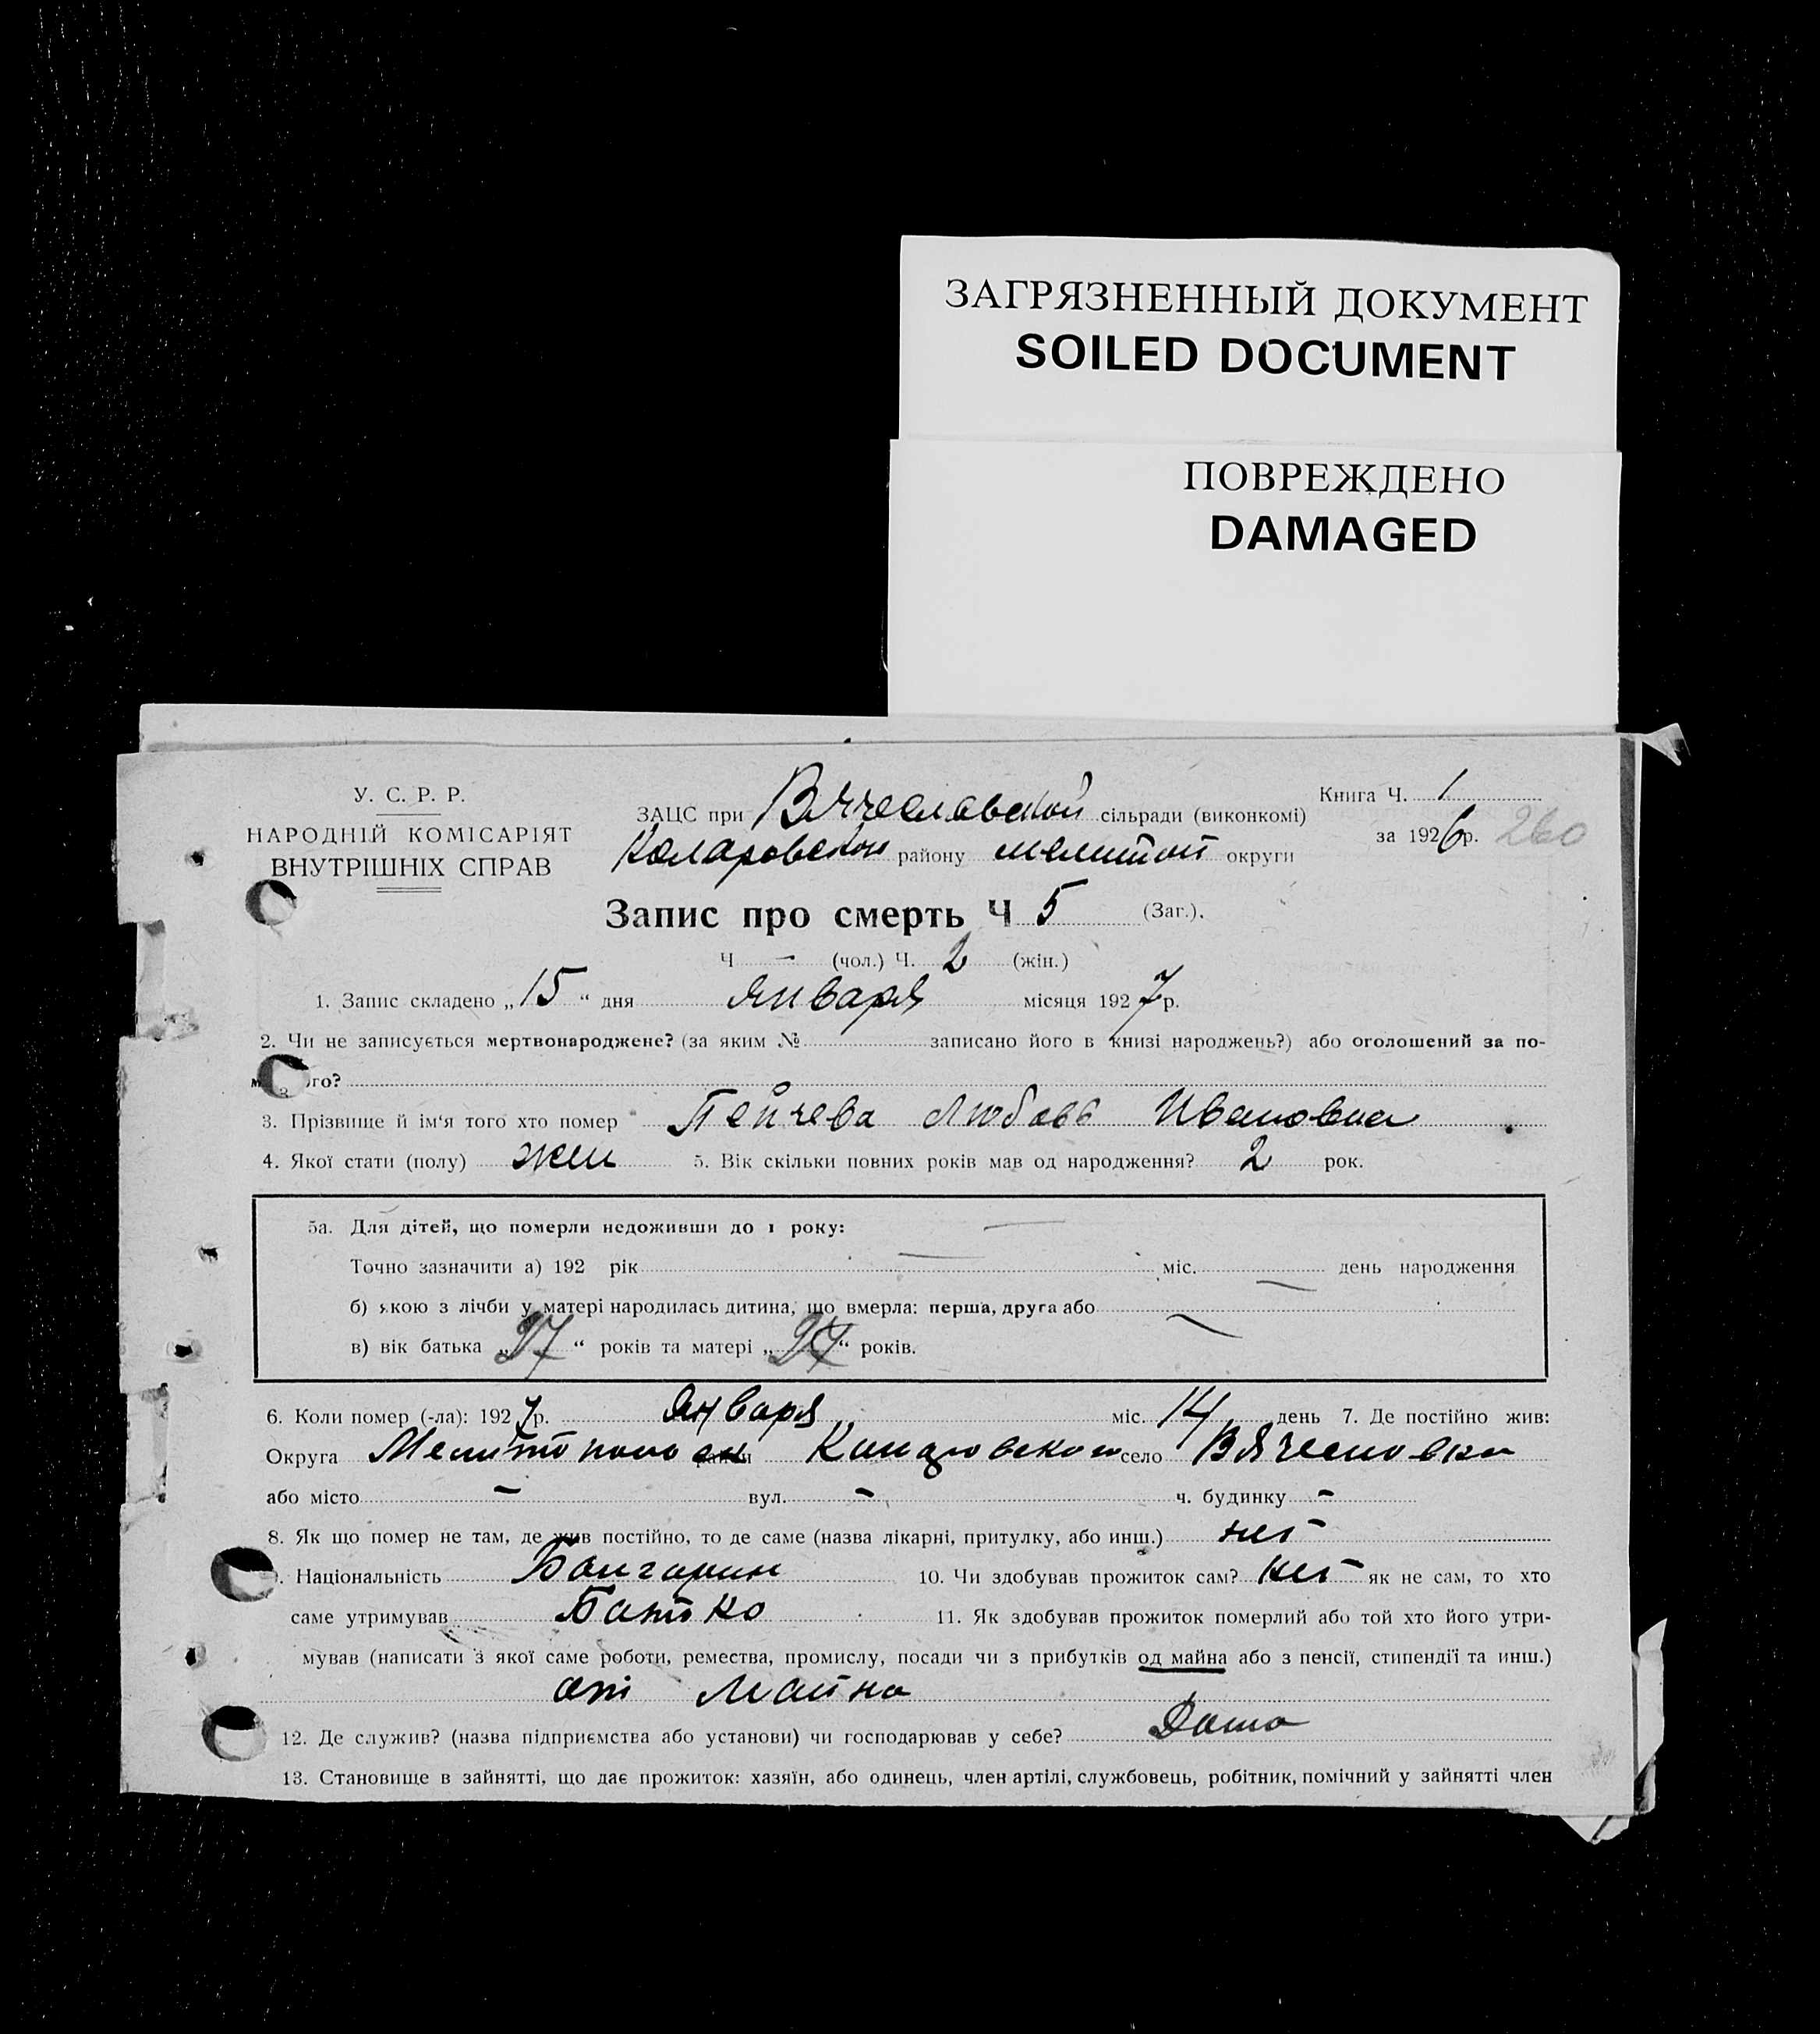 ЗАГРЯЗНЕННЫЙ ДОКУМЕНТ
SOILED DOCUMENT
ПОВРЕЖДЕНО
DAMAGED
У. С. Р. Р.
НАРОДНІЙ КОМІСАРІЯТ
ВНУТРІШНІХ СПРАВ
ЗАЦС при Вячеславской сільради (виконкомі)
Коларовской району мелитоп округи
Книга Ч. 1
за 1926 р. 260
Запис про смерть Ч 5 (Заг.).
Ч — (чол.) Ч. 2 (жін.)
1. Запис складено „ 15 “ дня января місяця 1927 р.
2. Чи не записується мертвонароджене? (за яким № записано його в книзі народжень?) або оголошений за по-
го?
3. Прізвище й ім'я того хто помер Пейчева Любовь Ивановна
4. Якої стати (полу) жен 5. Вік скільки повних років мав од народження? 2 рок.
5а. Для дітей, що померли недоживши до 1 року: —
Точно зазначити а) 192 рік — міс. — день народження
б) якою з лічби у матері народилась дитина, що вмерла: перша, друга або —
в) вік батька „ 27 “ років та матері „ “ років.
6. Коли помер (-ла): 1927 р. Января міс. 14 день 7. Де постійно жив:
Округа Мелитополь село Вячесловка
або місто — вул. — ч. будинку —
8. Як що помер не там, де жив постійно, то де саме (назва лікарні, притулку, або инш.) нет
. Національність Болгарин 10. Чи здобував прожиток сам? нет як не сам, то хто
саме утримував Батько 11. Як здобував прожиток померлий або той хто його утри-
мував (написати з якої саме роботи, ремества, промислу, посади чи з прибутків од майна або з пенсії, стипендії та инш.)
от Майна
12. Де служив? (назва підприємства або установи) чи господарював у себе? Дома
13. Становище в зайнятті, що дає прожиток: хазяїн, або одинець, член артілі, службовець, робітник, помічний у зайнятті член